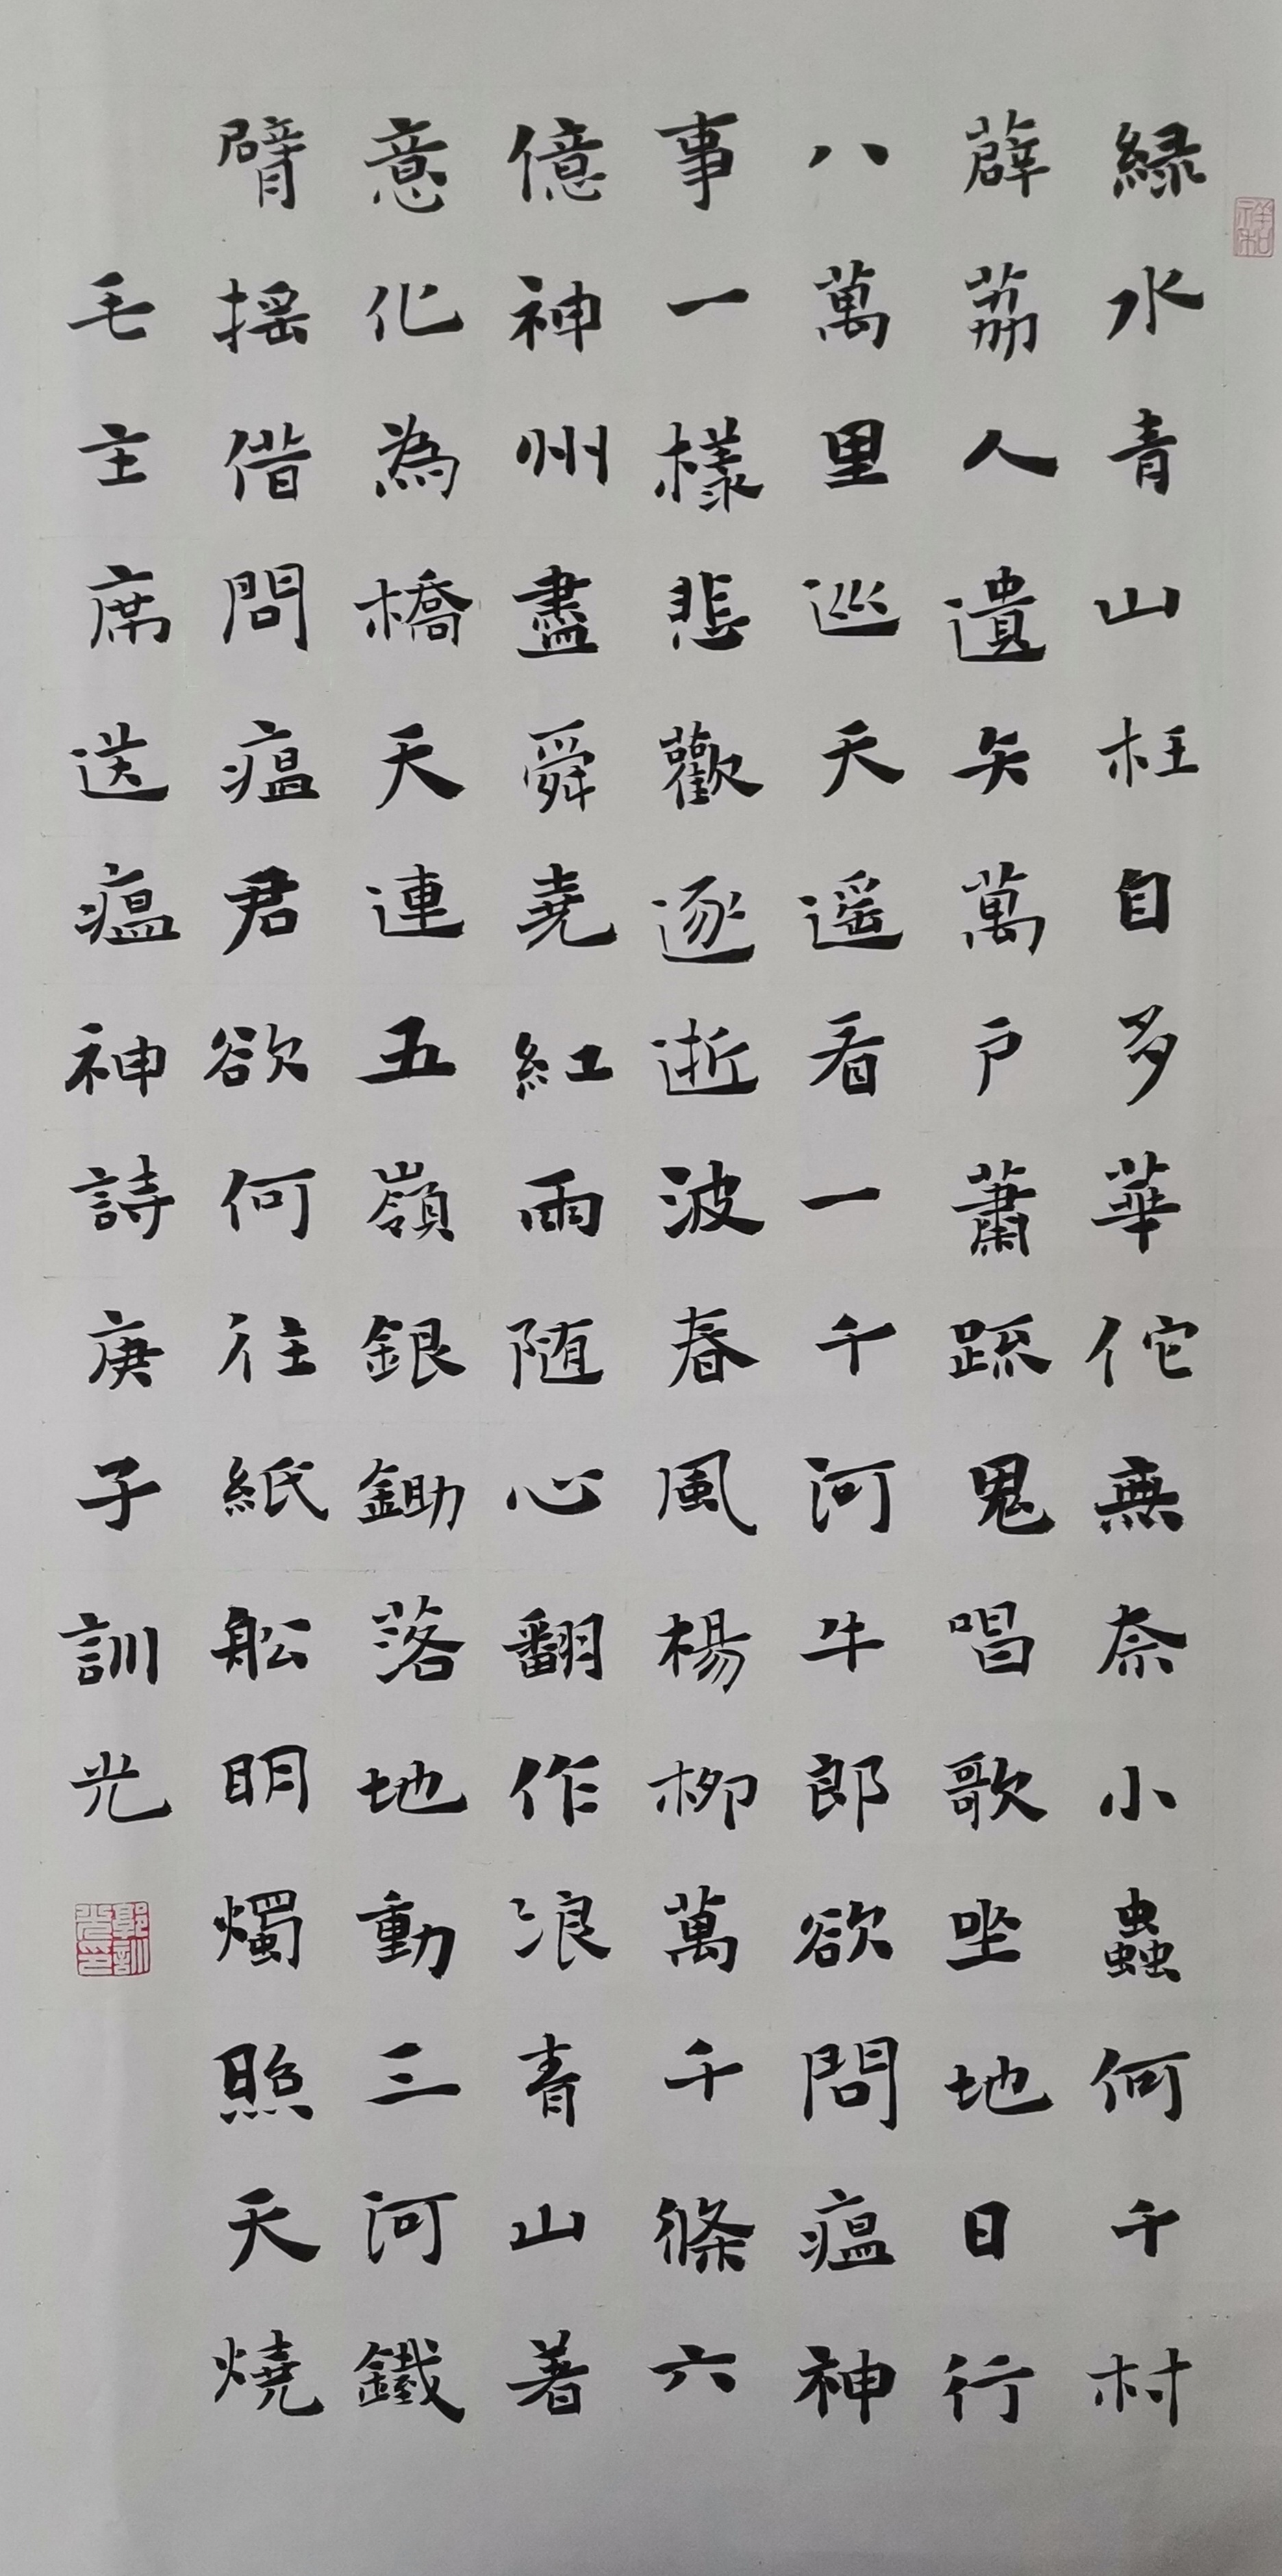 緑水青山枉自多華佗無奈小蟲何千村
薜荔人遺矢萬户蕭踈鬼唱歌坐地日行
八萬里巡天遥看一千河牛郎欲問瘟神
事一樣悲歡逐逝波春風楊柳萬千條六
億神州盡舜堯紅雨随心翻作浪青山著
意化為橋天連五嶺銀鋤落地動三河鐵
臂摇借問瘟君欲何往紙船明燭照天燒
毛主席送瘟神詩庚子訓光
祥和
郭訓光印